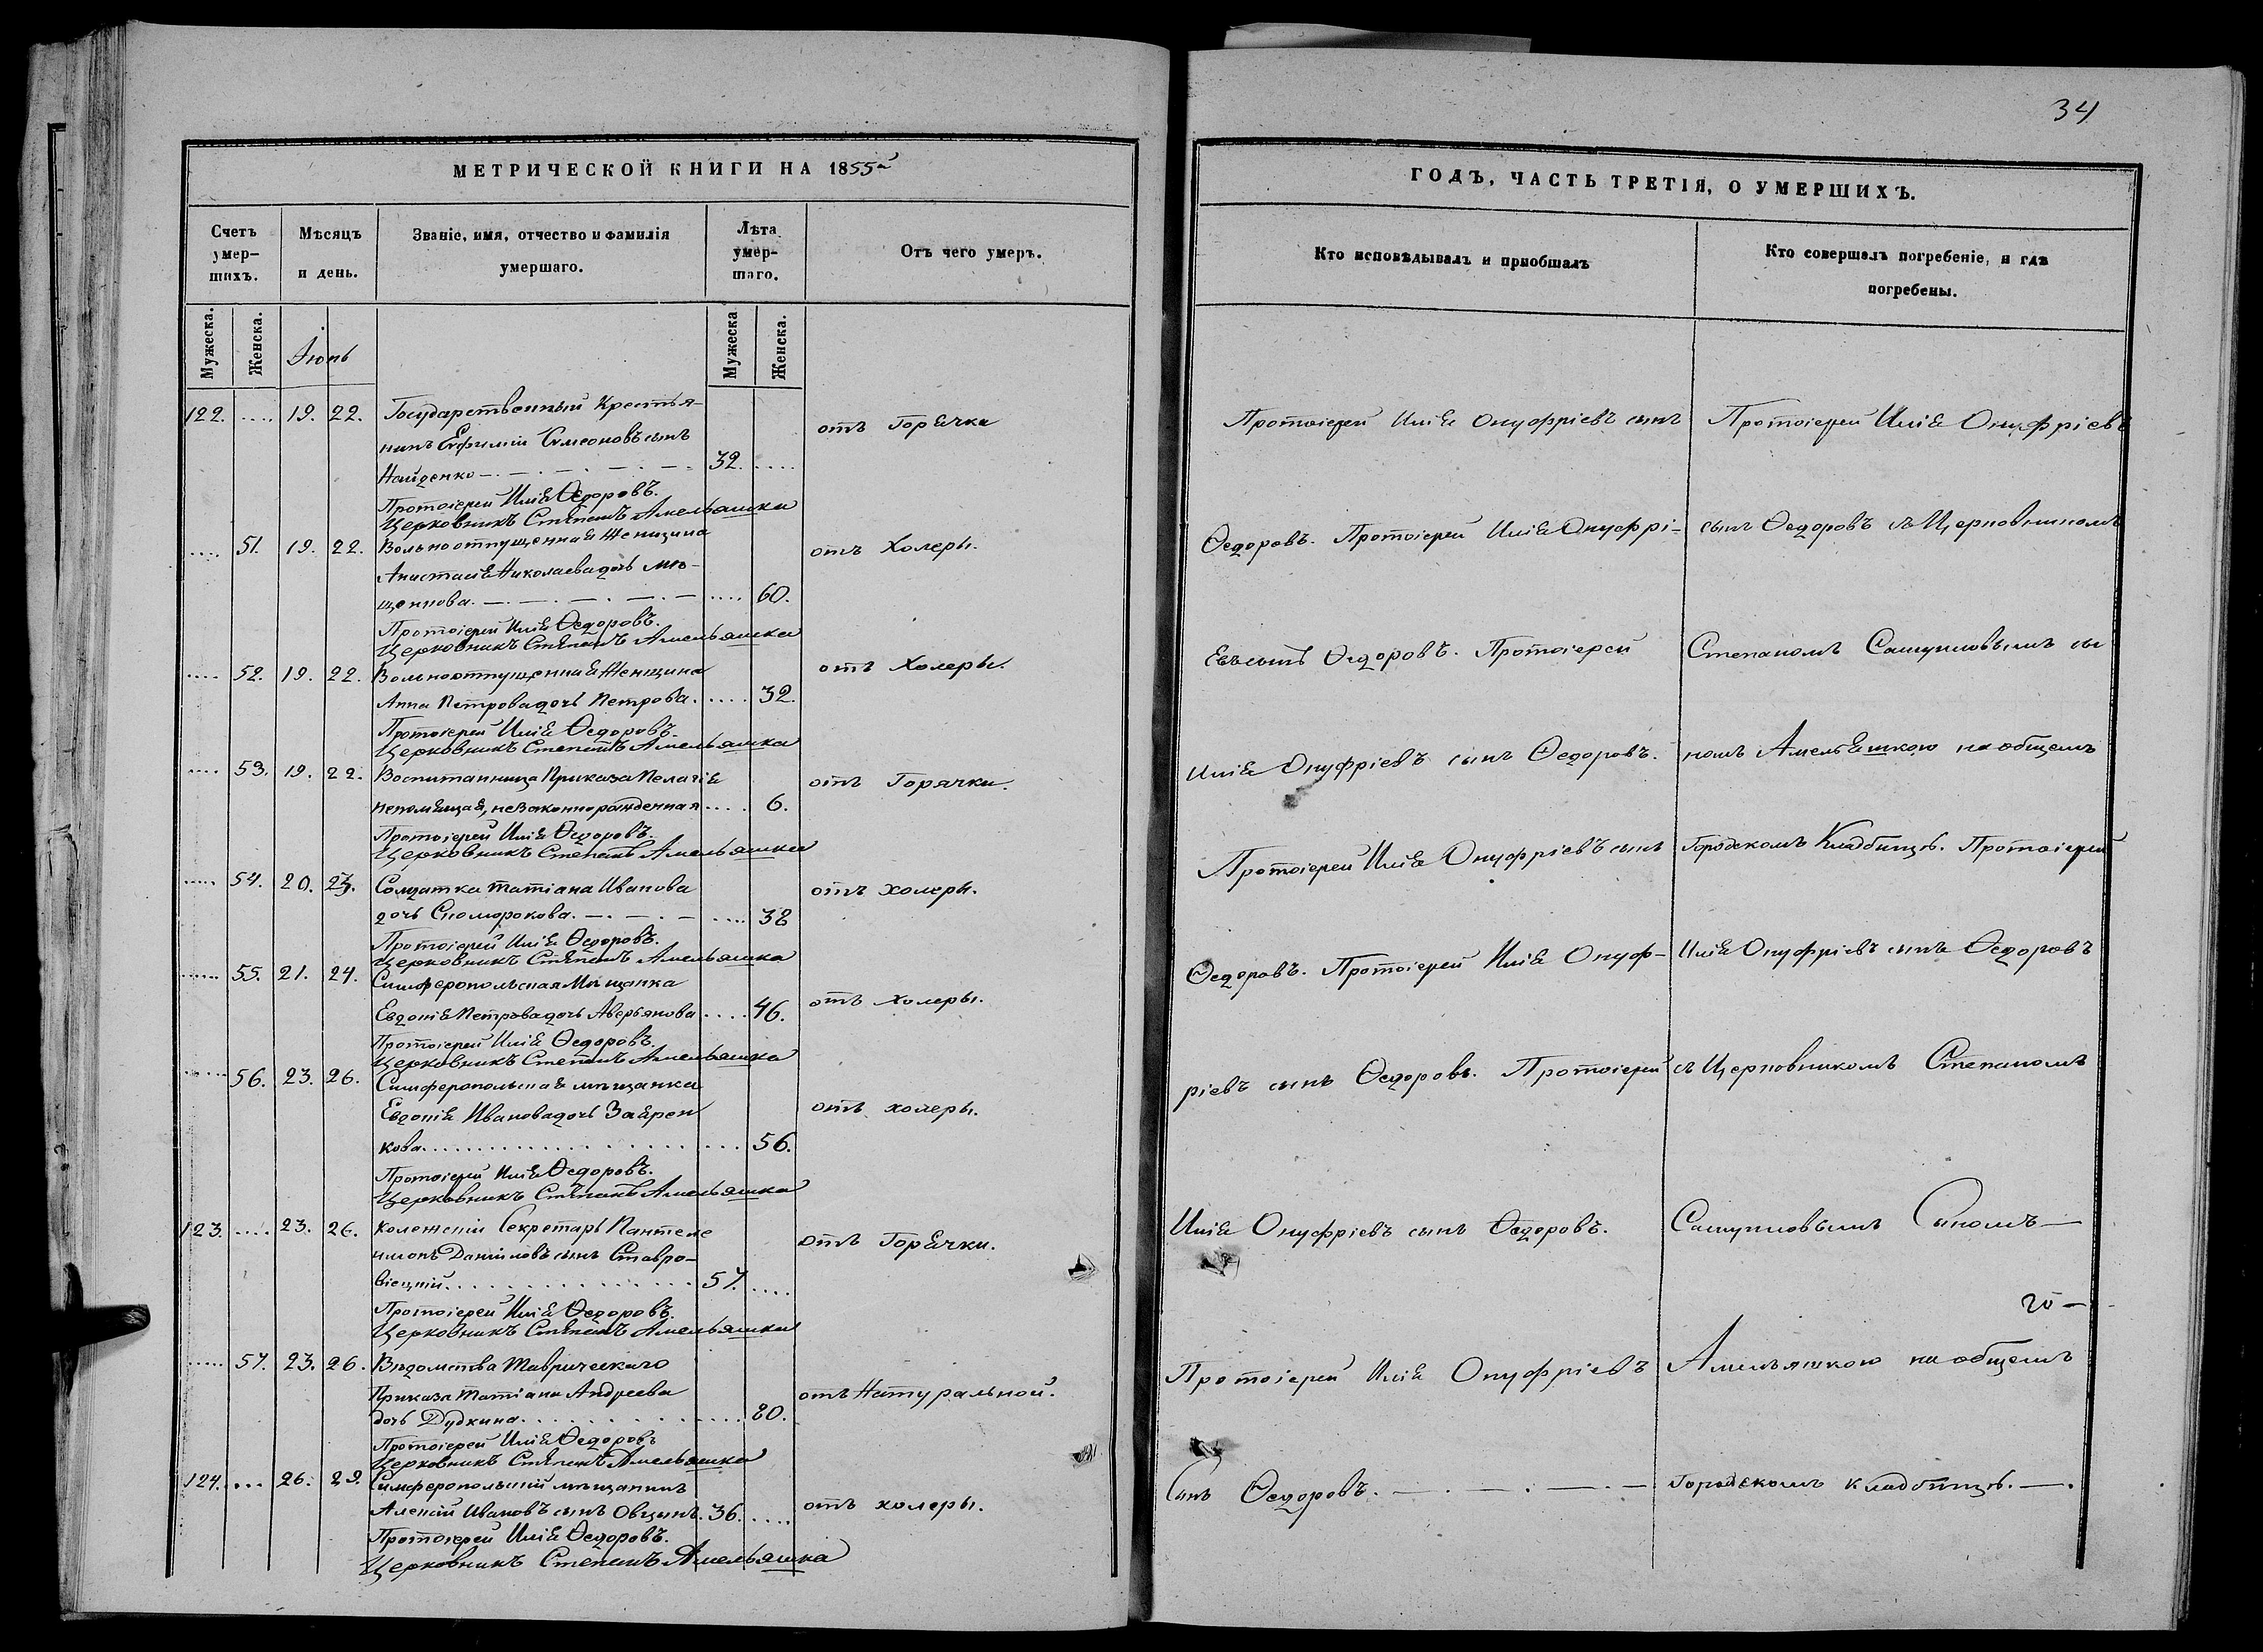 34
МЕТРИЧЕСКОЙ КНИГИ НА 1855й
Счетъ умер-шихъ.
Мѣсяцъ и день.
Званіе, имя, отчество и фамилія умершаго.
Лѣта умер-шаго.
Отъ чего умеръ.
Мужеска.
Женска.
Іюнь
Мужеска
Женска.
122. .... 19. 22. Государственный Крестья-
нинъ Ефимій Симеоновъ сынъ
Найденко 32. .... отъ Горячки
Протоіерей Илія Ѳедоровъ.
Церковникъ Стѣпанъ Амельяшка
.... 51. 19. 22. Вольноотпущенная Женщина
Анистасія Николаева дочь Мѣ-
щеннова. .... 60. отъ Холеры.
Протоіерей Илія Ѳедоровъ.
Церковникъ Стѣпанъ Амельяшка
.... 52. 19. 22. Вольноотпущенная Женщина
Анна Петрова дочь Петрова. .... 32. отъ Холеры.
Протоіерей Илія Ѳедоровъ.
Церковникъ Степанъ Амельяшка
.... 53. 19. 22. Воспитанница Приказа Пелагія
непомнящая, незаконнорожденная .... 6. отъ Горячки.
Протоіерей Илія Ѳедоровъ.
Церковникъ Степанъ Амельяшка
.... 54. 20. 23. Солдатка Татіана Иванова
дочь Скоморокова. .... 38 отъ холеры.
Протоіерей Илія Ѳедоровъ.
Церковникъ Стѣпанъ Амельяшка
.... 55. 21. 24. Симферопольская Мѣщанка
Евдокія Петрова дочь Аверьянова .... 46. отъ холеры.
Протоіерей Илія Ѳедоровъ.
Церковникъ Степанъ Амельяшка
.... 56. 23. 26. Симферопольская мѣщанка
Евдокія Иванова дочь Заярен
кова. .... 56. отъ холеры.
Протоіерей Илія Ѳедоровъ.
Церковникъ Стѣпанъ Амельяшка
123. .... 23. 26. Колежскій Секретарь Пантеле
имонъ Даніиловъ сынъ Ставро-
віецкій. 57. .... отъ Горячки.
Протоіерей Илія Ѳедоровъ.
Церковникъ Стѣпанъ Амельяшка
.... 57. 23. 26. Вѣдомства Таврическаго
Приказа Татіана Андреева
дочь Дудкина. .... 80. отъ Натуральной.
Протоіерей Илія Ѳедоровъ
Церковникъ Стѣпанъ Амельяшка
124. ... 26. 29. Симферопольскій мѣщанинъ
Алексій Ивановъ сынъ Овцынъ. 36. .... отъ холеры.
Протоіерей Илія Ѳедоровъ.
Церковникъ Степанъ Амельяшка
ГОДЪ, ЧАСТЬ ТРЕТІЯ, О УМЕРШИХЪ.
Кто исповѣдывалъ и пріобщалъ
Протоіерей Илія Онуфріевъ сынъ
Ѳедоровъ. Протоіерей Илія Онуфрі-
евъ сынъ Ѳедоровъ. Протоіерей
Илія Онуфріевъ сынъ Ѳедоровъ.
Протоіерей Илія Онуфріевъ сынъ
Ѳедоровъ. Протоіерей Илія Онуф-
ріевъ сынъ Ѳедоровъ. Протоіерей
Илія Онуфріевъ сынъ Ѳедоровъ.
Протоіерей Илія Онуфріевъ
Сынъ Ѳедоровъ.
Кто совершалъ погребеніе, и гдѣ погребены.
Протоіерей Илія Онуфріевъ
сынъ Ѳедоровъ съ Церковникомъ
Степаномъ Самуиловымъ сы
номъ Амельяшкою на общемъ
Городскомъ Кладбищѣ. Протоіерей
Илія Онуфріевъ сынъ Ѳедоровъ
съ Церковникомъ Степаномъ
Самуиловымъ Сыномъ
го-
Амельяшкою на общемъ
городскомъ кладбищѣ.